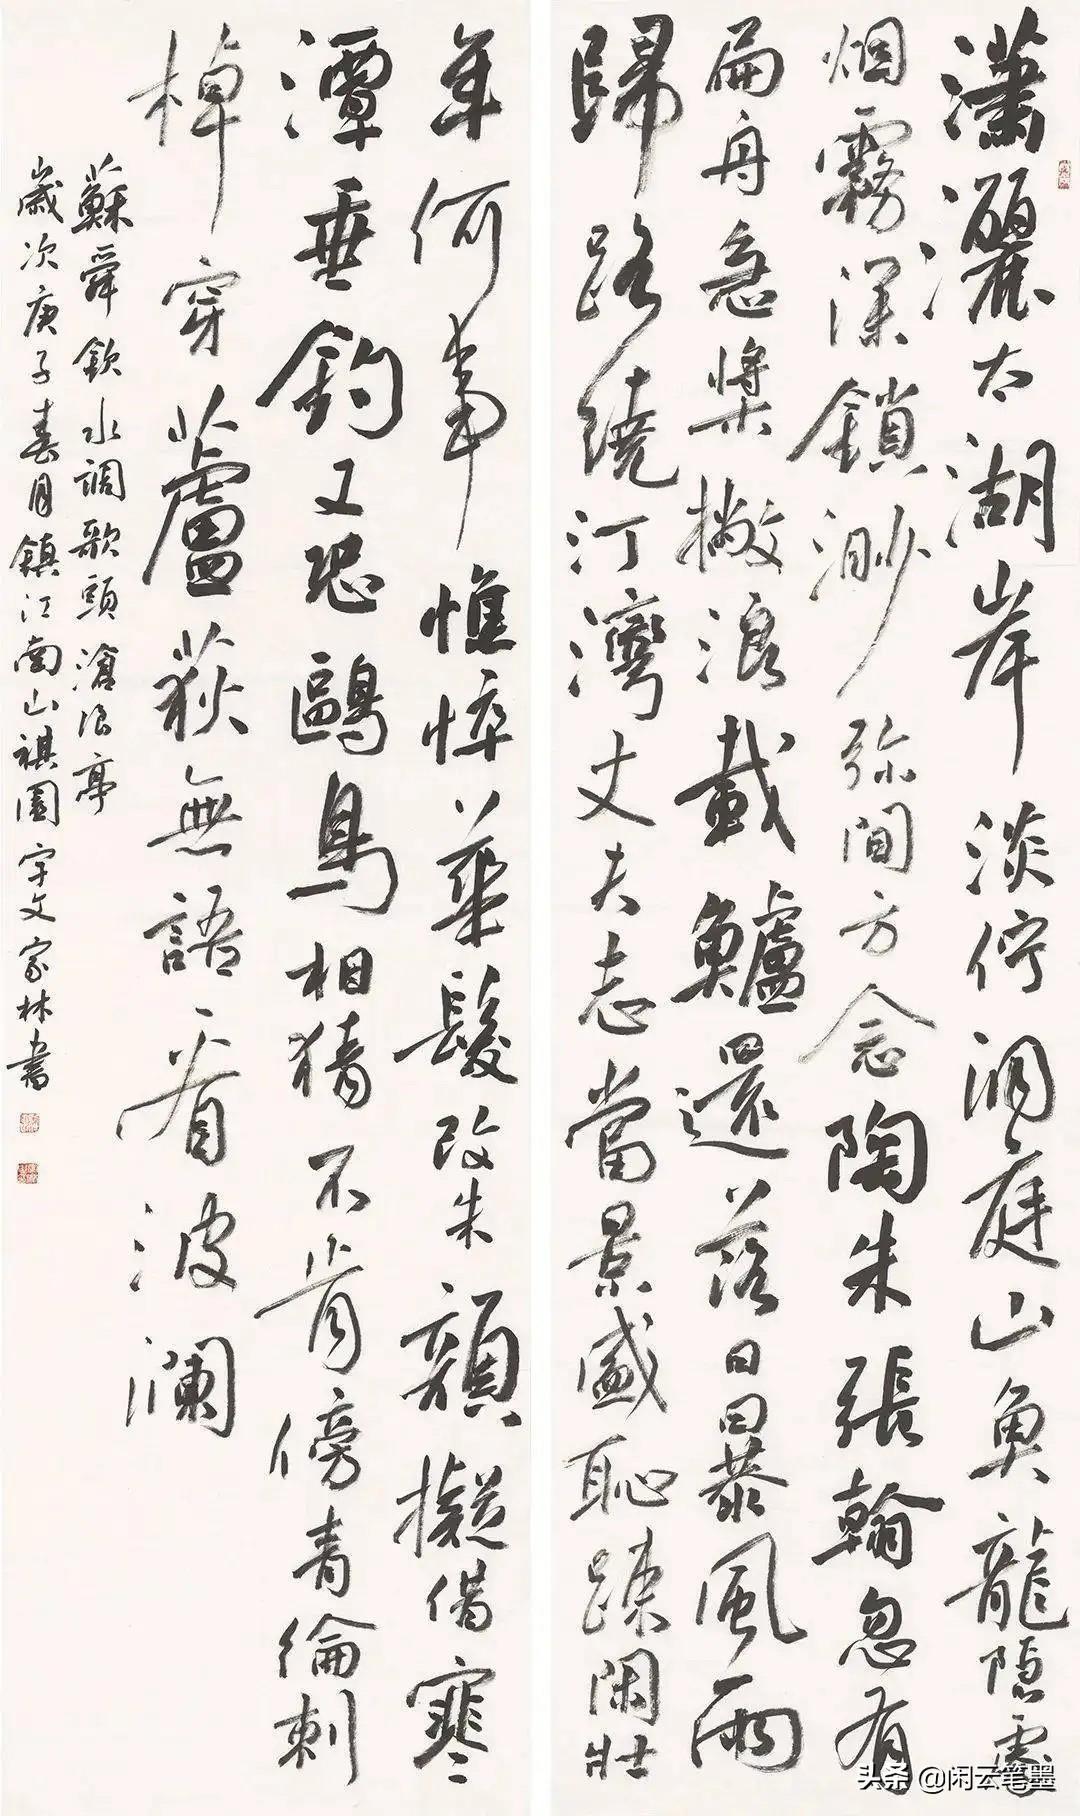 潇灑太湖岸淡佇洞庭山魚龍隐處
烟霧深鎖渺弥間方念陶朱張翰忽有
扁舟急槳撇浪載鱸還落日暴風雨
歸路繞汀灣丈夫志當景盛恥疎閑壯
年何事憔悴華髮改朱顔擬借寒
潭垂釣又恐鷗鳥相猜不肯傍青綸刺
棹穿蘆荻無語看波瀾
蘇舜欽水調歌頭滄浪亭
歲次庚子春月鎮江南山祺園宇文家林書
头条 @闲云笔墨